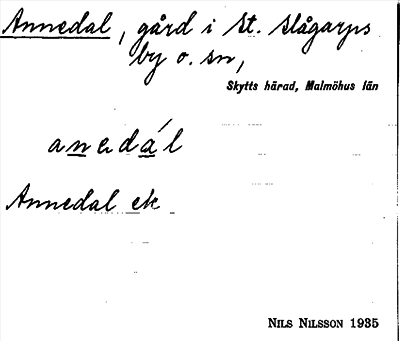 Annedal, gård i St. Slågarps
by o. sn,
Skytts härad, Malmöhus län
anedál
Annedal ek
NILS NILSSON 1935